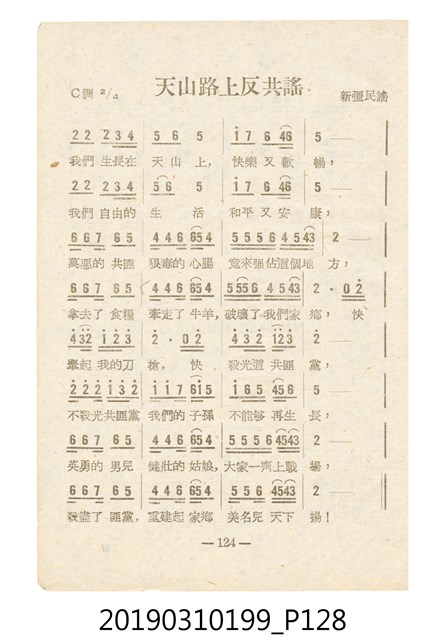 天山路上反共謠
C調 2/4
新疆民謠
2 2 2 3 4 5 6 5 i 7 6 46 5 —
我們 生長在 天 山 上， 快樂 又 歡 暢，
2 2 2 3 4 5 6 5 i 7 6 46 5 —
我們 自由的 生 活 和平 又 安 康，
6 6 7 6 5 4 4 6 654 5 5 5 6 4 5 43 2 —
萬惡的 共匪 狠毒的 心腸 竟來强佔這個地 方，
6 6 7 6 5 4 4 6 654 5 55 6 4 5 43 2 · 0 2
拿去了 食糧 牽走了 牛羊，破壞了我們家 鄉， 快
432 123 2 · 0 2 432 123 2
舉起 我的刀 槍， 快 殺光這 共匪 黨，
2 2 2 1 3 2 1 1 7 615 1 6 5 45 6 5
不殺光共匪黨 我們的 子孫 不能够 再生 長，
6 6 7 6 5 4 4 6 654 5 5 5 6 4543 2 —
英勇的 男兒 健壯的 姑娘，大家一齊上戰 場，
6 6 7 6 5 4 4 6 65 4 5 5 6 4543 2 —
殺盡了 匪黨，重建起 家鄉 美名兒 天下 揚！
— 124 —
20190310199_P128